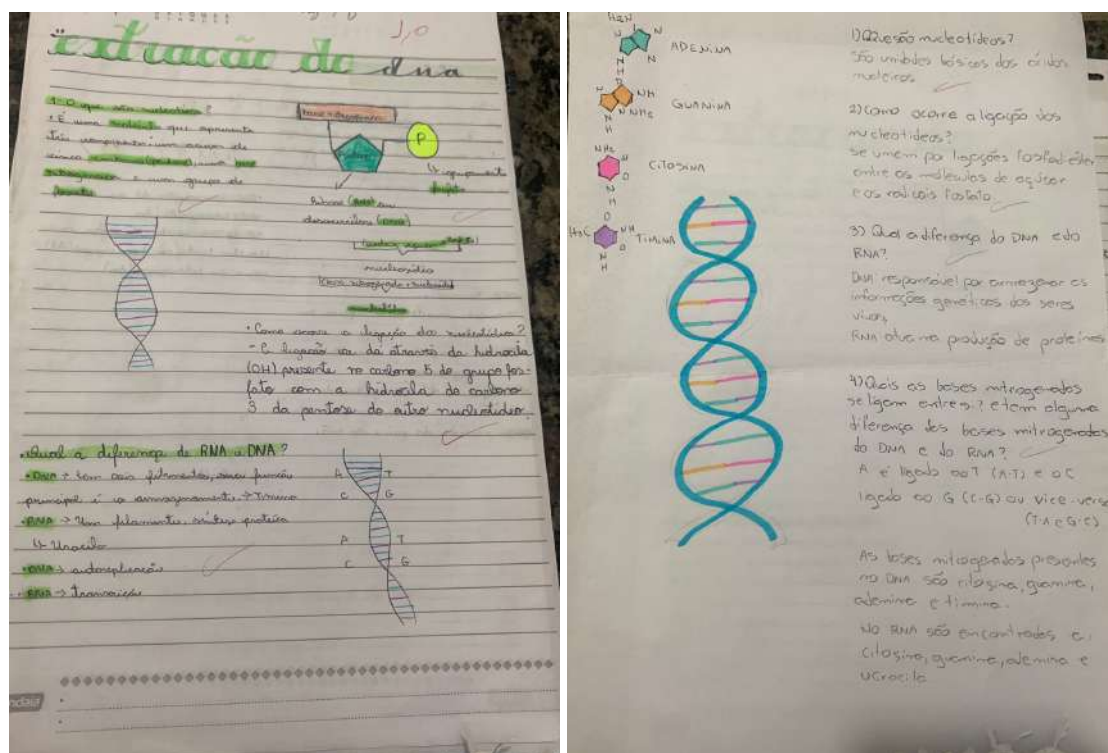 1,0
extração do dna
1- O que são nucleotídeos?
• É uma molécula que apresenta
três componentes: um açúcar de
cinco carbonos (pentose), uma base
nitrogenada e um grupo de
fosfato
base nitrogenada
P
↳ agrupamento
fosfato
ribose (RNA) ou
desoxirribose (DNA)
nucleosídeo
• Como ocorre a ligação dos nucleotídeos?
- A ligação se dá através da hidroxila
(OH) presente no carbono 5 do grupo fos-
fato com a hidroxila do carbono
3 da pentose do outro nucleotídeo.
• Qual a diferença de RNA e DNA?
• DNA → tem dois filamentos, sua função
principal é o armazenamento → Timina
• RNA → Um filamento, síntese proteica
↳ Uracila
• DNA → autoreplicação
• RNA → transcrição
A T
C G
A T
C G
H2N
N
N
ADENINA
N
H
NH
GUANINA
NH2
N
H
NH2
N
CITOSINA
O
N
H
O
H3C
NH
TIMINA
O
N
H
1) O que são nucleotídeos?
São unidades básicas dos ácidos
nucleicos
2) Como ocorre a ligação dos
nucleotídeos?
se unem por ligações fosfodiéster
entre as moléculas de açúcar
e os radicais fosfato.
3) Qual a diferença do DNA e do
RNA?
DNA responsável por armazenar as
informações genéticas dos seres
vivos,
RNA atua na produção de proteínas
4) Quais as bases nitrogenadas
se ligam entre si? e tem alguma
diferença das bases nitrogenadas
do DNA e do RNA?
A é ligado ao T (A-T) e o C
ligado ao G (C-G) ou vice-versa
(T-A e G-C)
As bases nitrogenadas presentes
no DNA são citosina, guanina,
adenina e timina.
No RNA são encontrados a
citosina, guanina, adenina e
ucracila